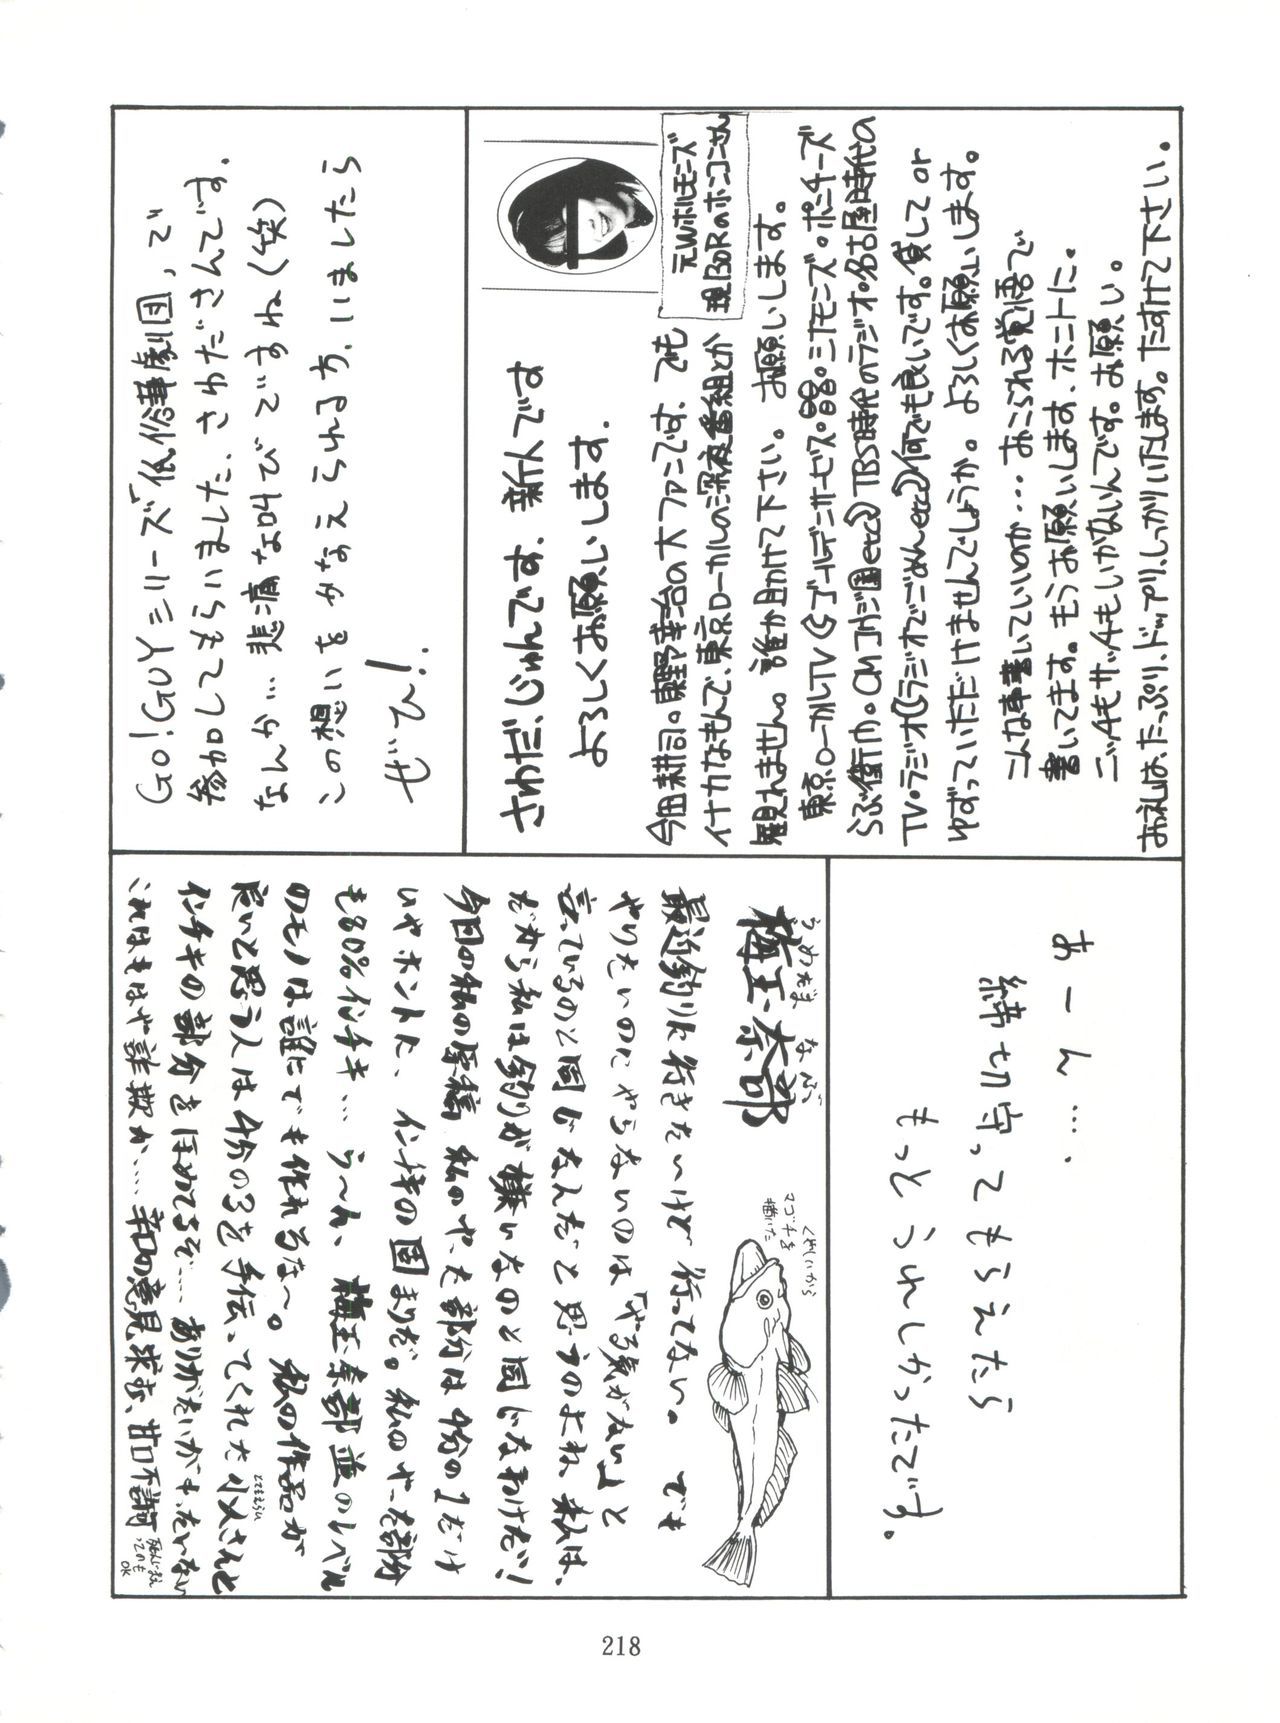 GO!GUYシリーズ「低俗華劇団」って
参加してもらいました、さわださんです。
なんか…悲痛な叫びですね(笑)
この想いをかなえられる方、いましたら
ぜひ!
さわだ、じゅんです、新人です
よろしくお願いします.
元Wホルモンズ
現130Rのホンコンさん
今田耕司。東野幸治の大ファンです、でも
イナカなもんで、東京ローカルの深夜番組とか
観れません。誰か助けて下さい。お願いします。
TV・ラジオ(ラジオでごめんetc)何でも良いです。貸して or
ゆずっていただけませんでしょうか。よろしくお願いします。
こんな事書いていいのか…おこられる覚悟で
書いてます。もうお願いします、ホントに。
ニッチもサッチもいかないんです。お願い。
お礼は、たっぷり、ドップリ、しっかりいたします。たすけて下さい。
梅玉奈部
うめだま なべ
くやしいから
マゴチを
描いた
最近釣りに行きたいけど行ってない。でも
やりたいのにやらないのは「やる気がない」と
言っているのと同じなんだと思うのよね、私は、
だから私は釣りが嫌いなのと同じなわけだ!
今回の私の原稿 私のやった部分は4分の1だけ
いやホントに、インチキの固まりだ。私のやった部分
も80%インチキ…う〜ん、梅玉奈部並のレベル
のモノは誰にでも作れるな〜。私の作品が
良いと思う人は4分の3を手伝ってくれた小メさんと
とてもえらい
インチキの部分をほめてるぞ…ありがたいがもったいない
これはもはや詐欺か…辛口の意見求む、甘口不議可
OK
あーん….
締切守ってもらえたら
もっとうれしかったです。
218